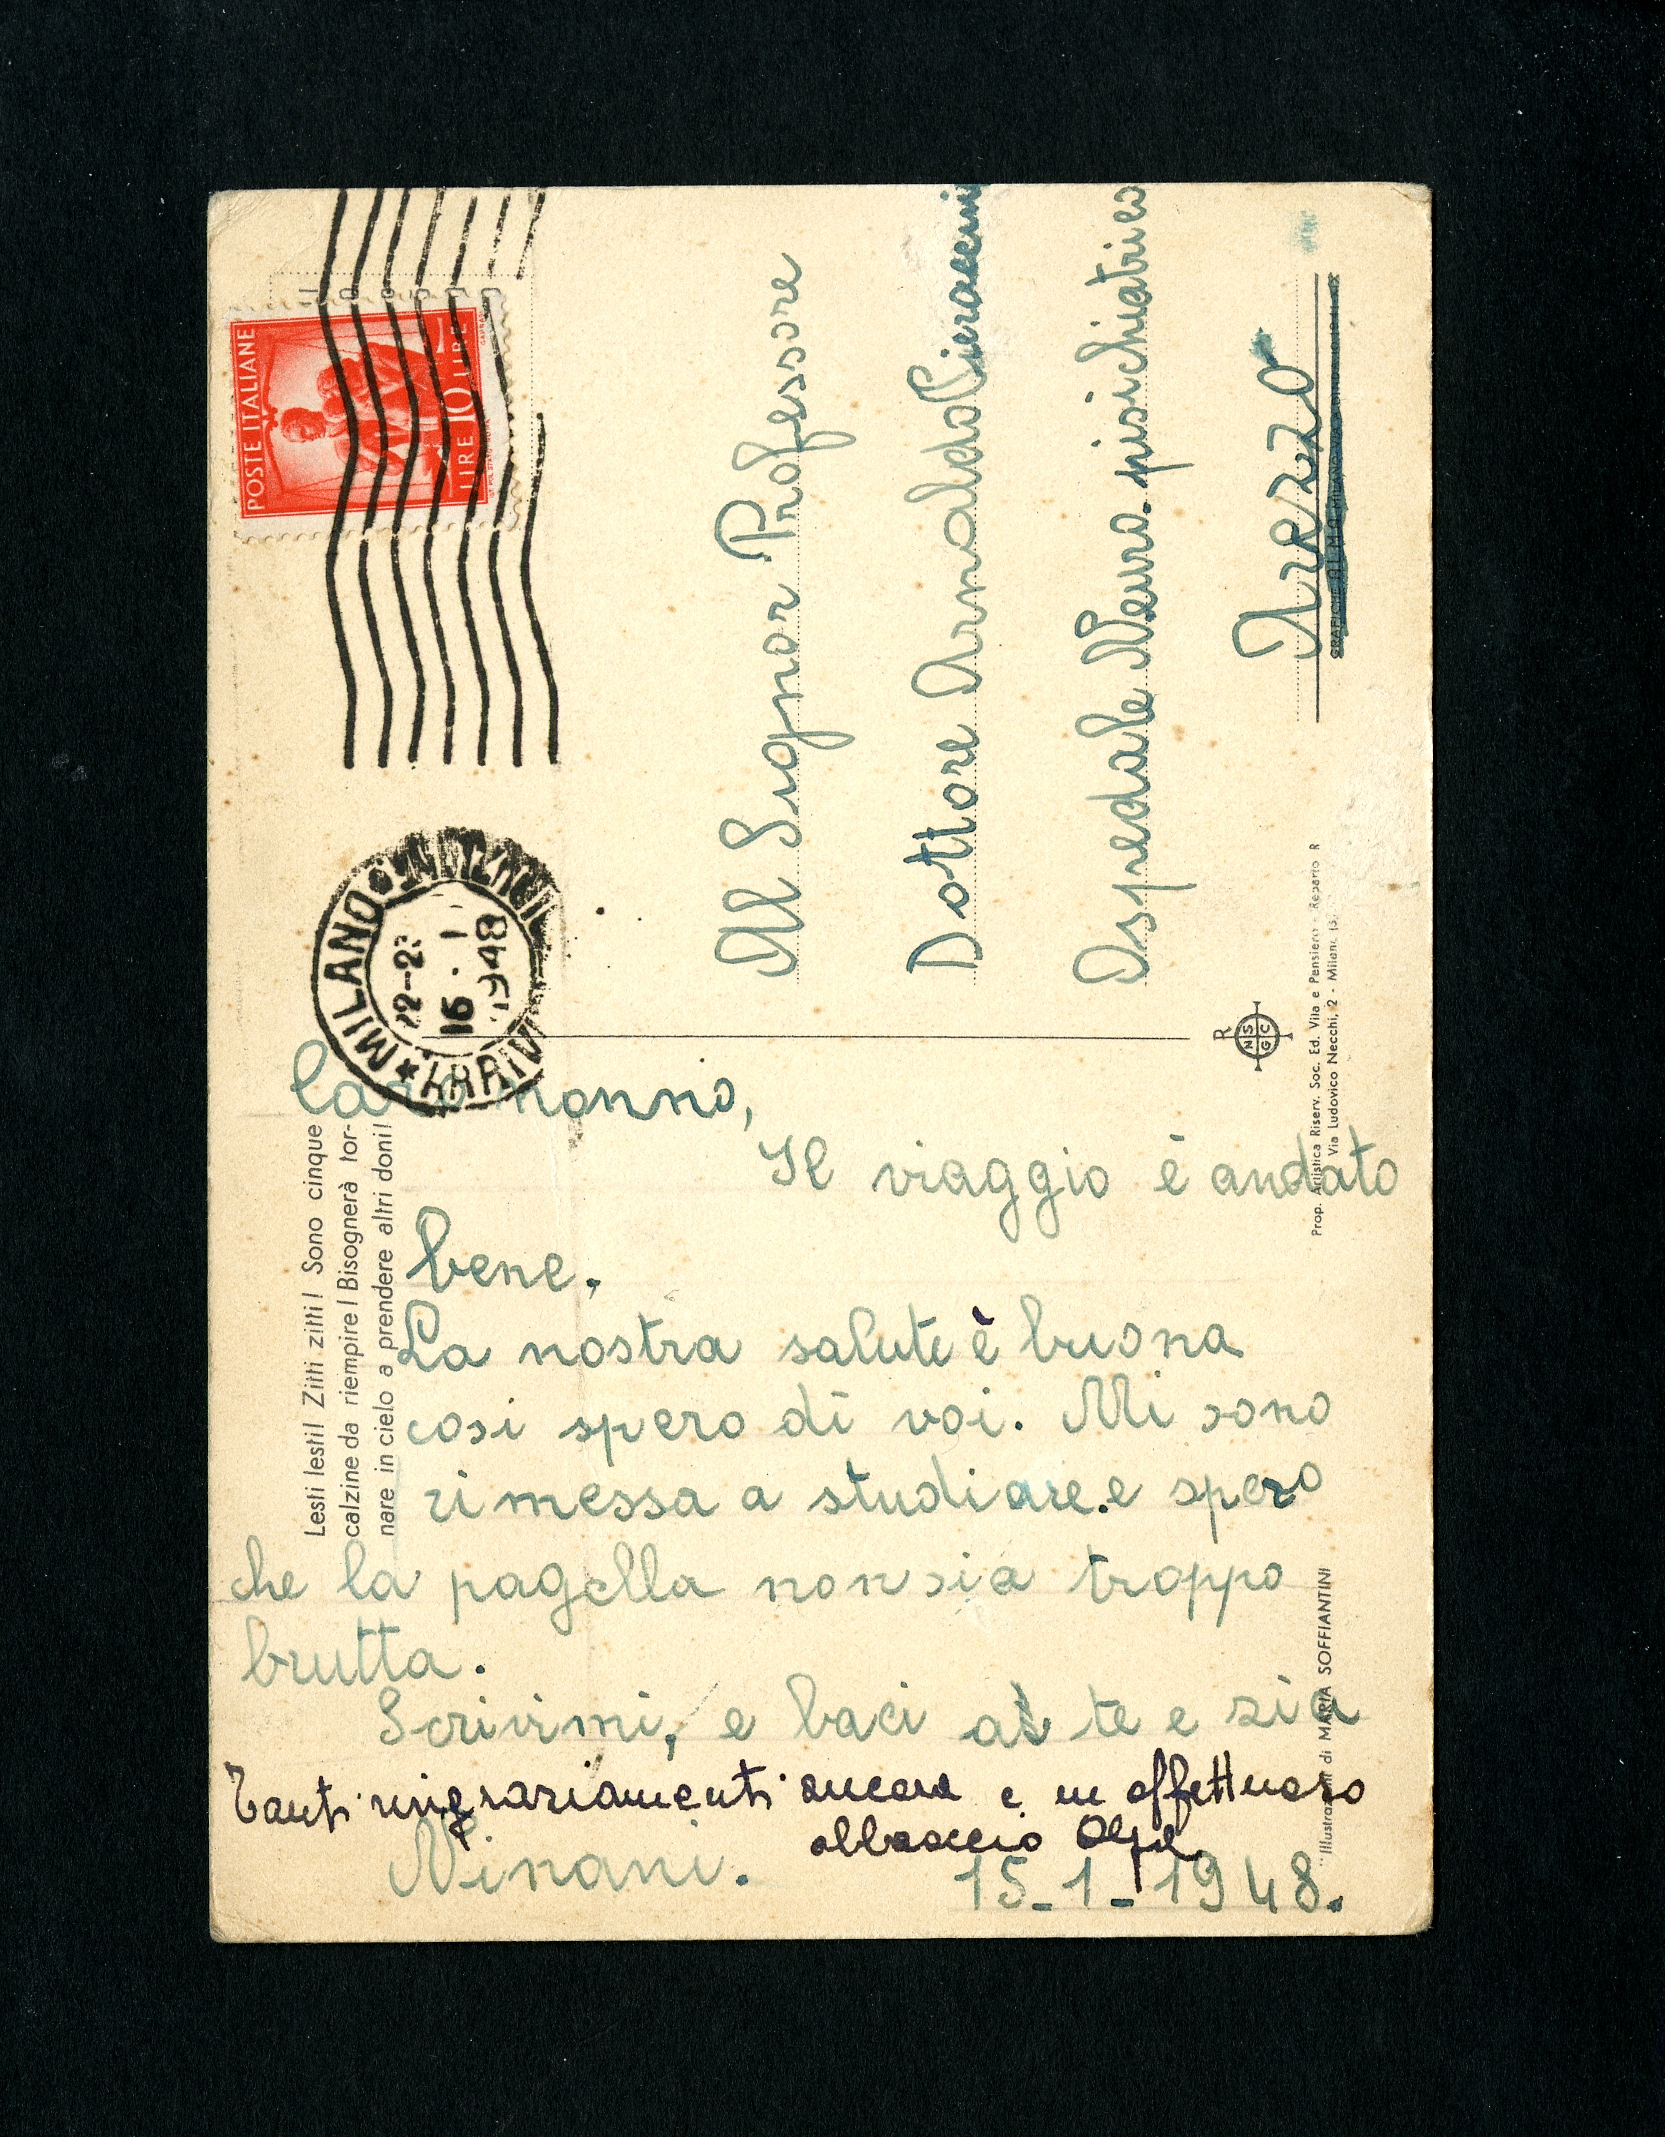 Caro nonno,
Il viaggio è andato
bene.
La nostra salute è buona
cosi spero di voi. Mi sono
rimessa a studiare.e spero
che la pagella non sia troppo
brutta.
Scrivimi, e baci a te e zia
Tanti ringraziamenti ancora e un affettuoso
abbraccio
Ninani.
15-1-1948.
Al Signor Professore
Dottore Arnaldo Pieraccini
Ospedale Neuro-pisichiatrico
Arezzo
POSTE ITALIANE
LIRE 10 LIRE
MILANO
ARRIVI
22-23
16.1
1948
Lesti lesti! Zitti zitti! Sono cinque
calzine da riempire! Bisognerà tor-
nare in cielo a prendere altri doni!
R
N S
G C
Prop. Artistica Riserv. Soc. Ed. Vita e Pensiero - Reparto R
Via Ludovico Necchi, 2 - Milano (3
Illustrazioni di MARIA SOFFIANTINI